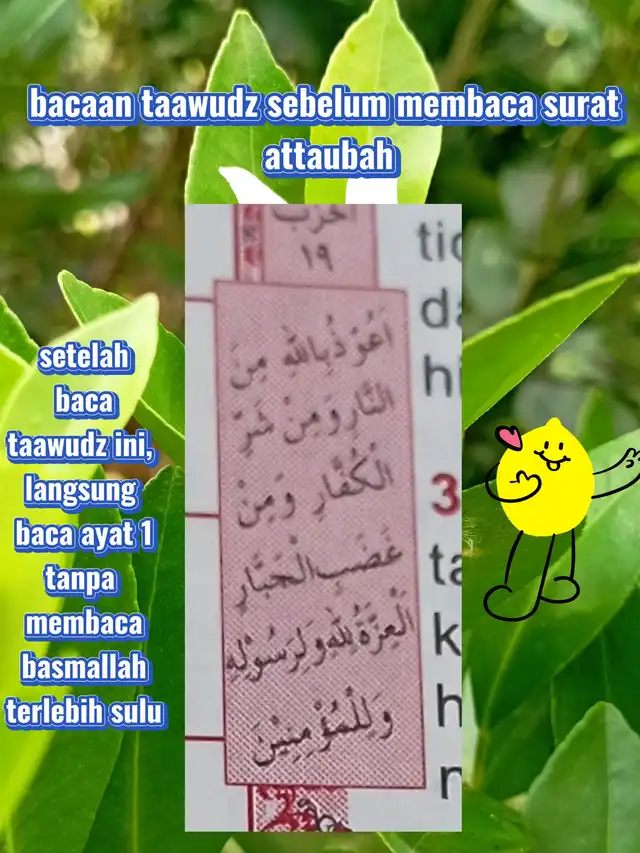 bacaan taawudz sebelum membaca surat
attaubah
setelah
baca
taawudz ini,
langsung
baca ayat 1
tanpa
membaca
basmallah
terlebih sulu
١٩
اَعُوْذُ بِاللهِ مِنَ
النَّارِ وَمِنْ شَرِّ
الْكُفَّارِ وَمِنْ
غَضَبِ الْجَبَّارِ
اَلْعِزَّةُ لِلّٰهِ وَلِرَسُوْلِهِ
وَلِلْمُؤْمِنِيْنَ
3